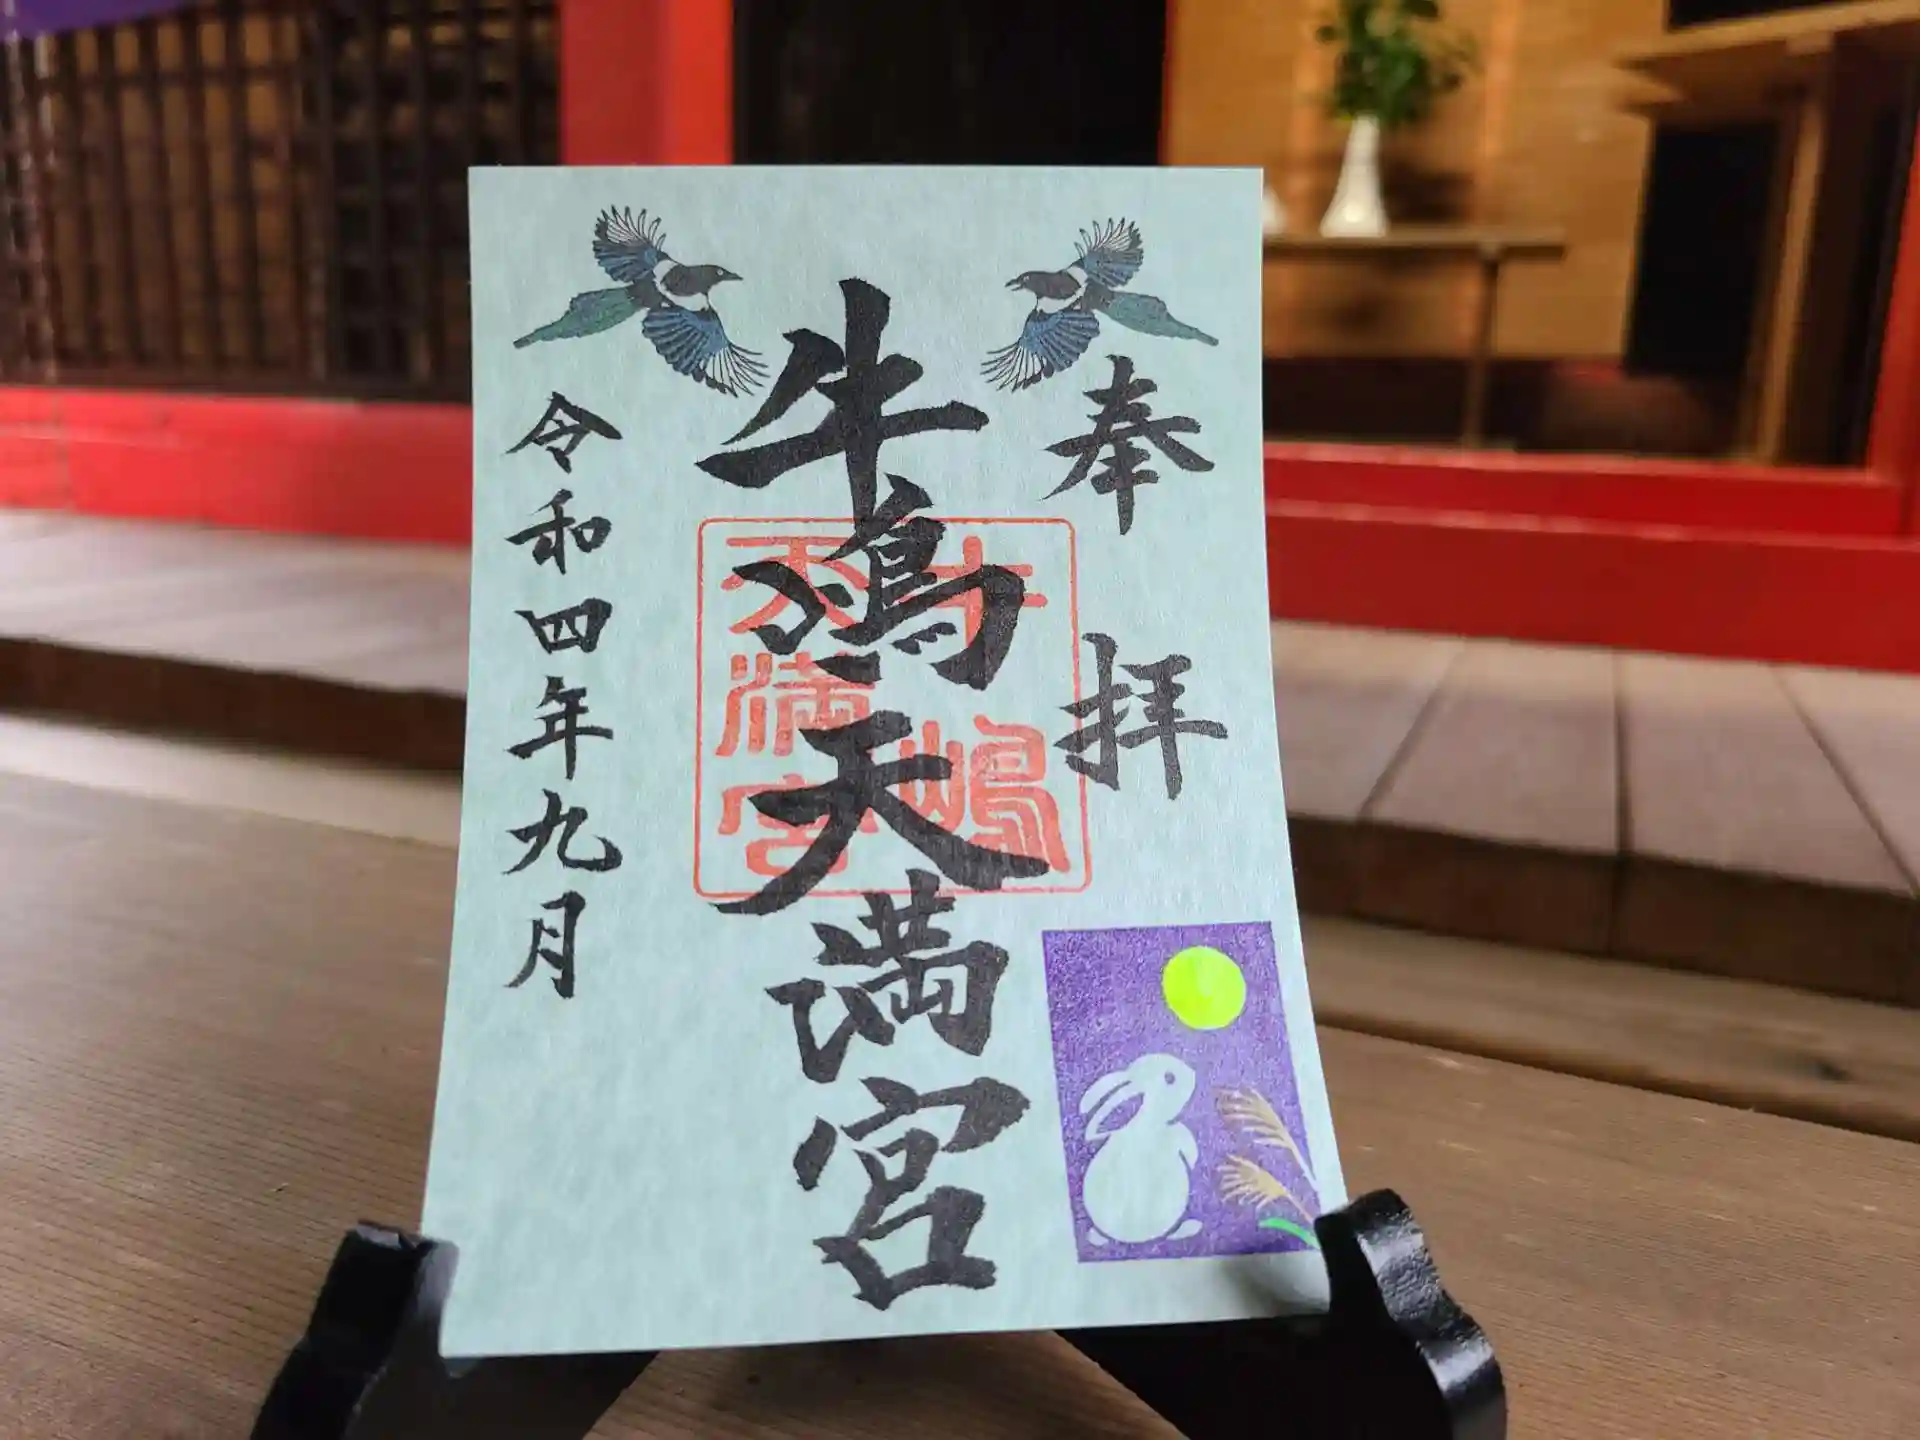 奉拝
牛嶋天満宮
牛嶋
天満宮
令和四年九月